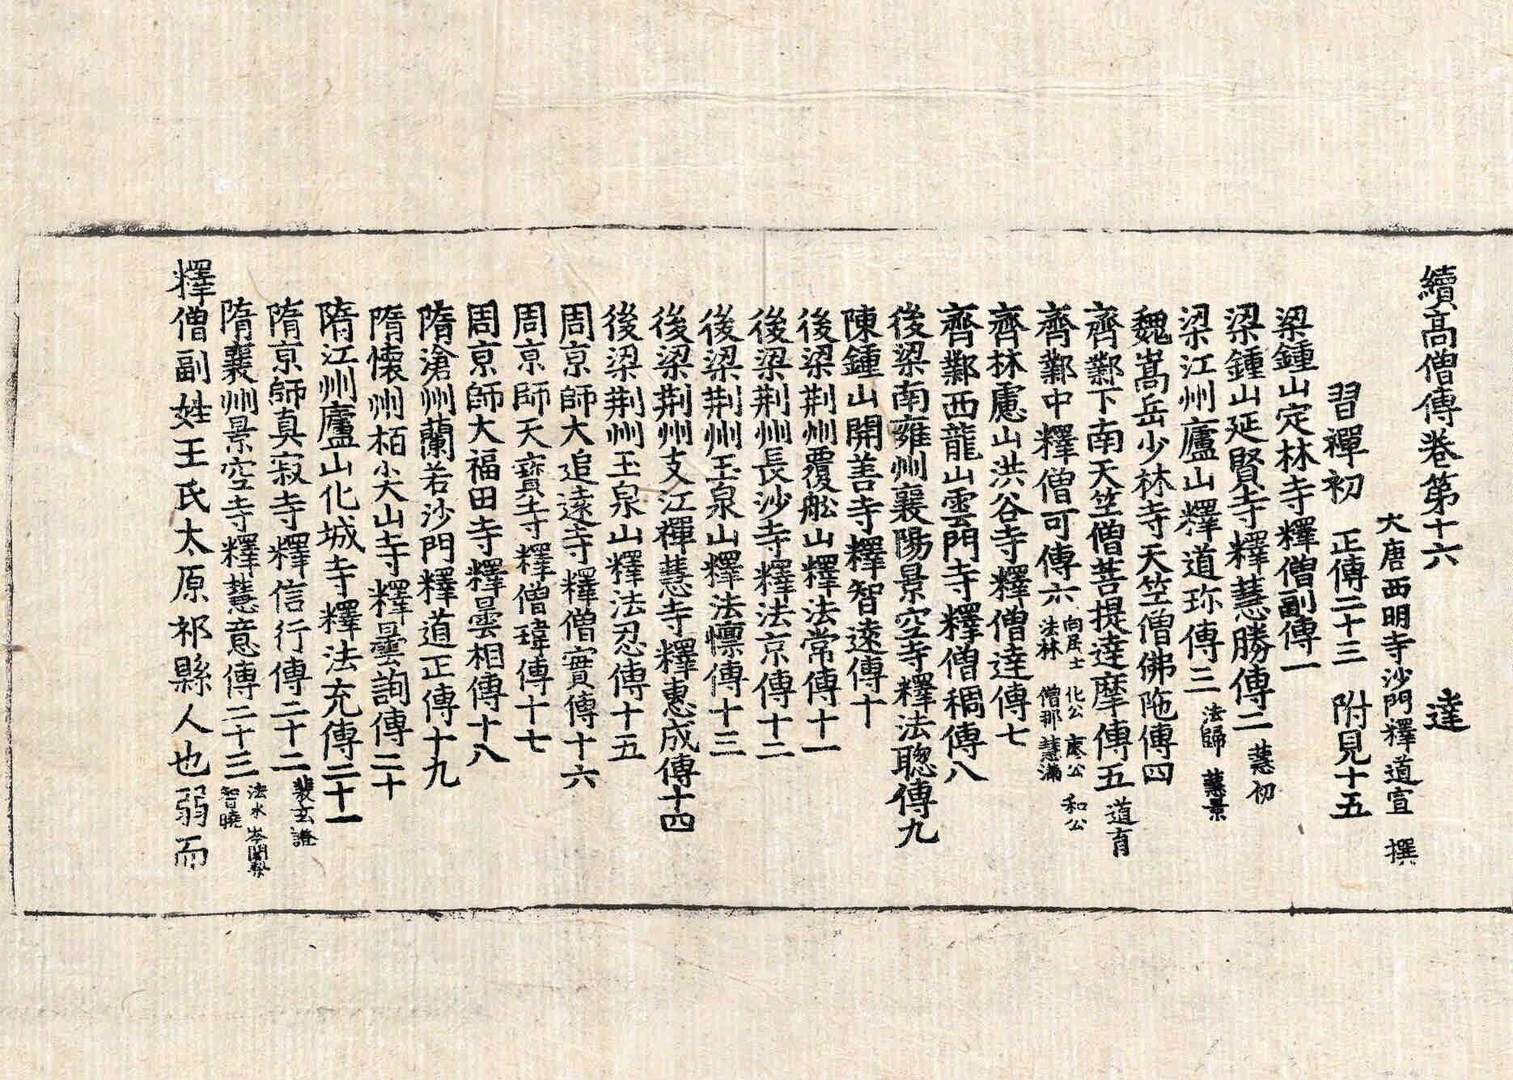 續高僧傳卷第十六 達
大唐西明寺沙門釋道宣 撰
習禪初 正傳二十三 附見十五
梁鍾山定林寺釋僧副傳一
梁鍾山延賢寺釋慧勝傳二 慧初
梁江州廬山釋道珎傳三 法歸 慧景
魏嵩岳少林寺天竺僧佛陁傳四
齊鄴下南天竺僧菩提達摩傳五 道育
齊鄴中釋僧可傳六 向居士 化公 廖公 和公 法林 僧那 慧滿
齊林慮山洪谷寺釋僧達傳七
齊鄴西龍山雲門寺釋僧稠傳八
後梁南雍州襄陽景空寺釋法聦傳九
陳鍾山開善寺釋智遠傳十
後梁荆州覆舩山釋法常傳十一
後梁荆州長沙寺釋法京傳十二
後梁荆州玉泉山釋法懍傳十三
後梁荆州支江禪慧寺釋惠成傳十四
後梁荆州玉泉山釋法忍傳十五
周京師大追遠寺釋僧實傳十六
周京師天寶寺釋僧瑋傳十七
周京師大福田寺釋曇相傳十八
隋滄州蘭若沙門釋道正傳十九
隋懷州栢尖山寺釋曇詢傳二十
隋江州廬山化城寺釋法充傳二十一
隋京師真寂寺釋信行傳二十二 裴玄證
隋襄州景空寺釋慧意傳二十三 法永 岑闍梨 智曉
釋僧副姓王氏太原祁縣人也弱而